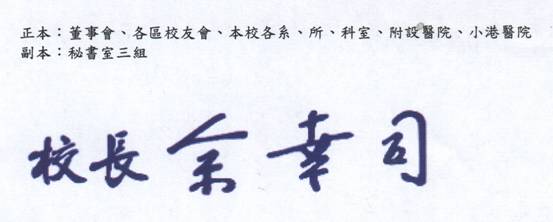 正本：董事會、各區校友會、本校各系、所、科室、附設醫院、小港醫院
副本：秘書室三組
校長余幸司